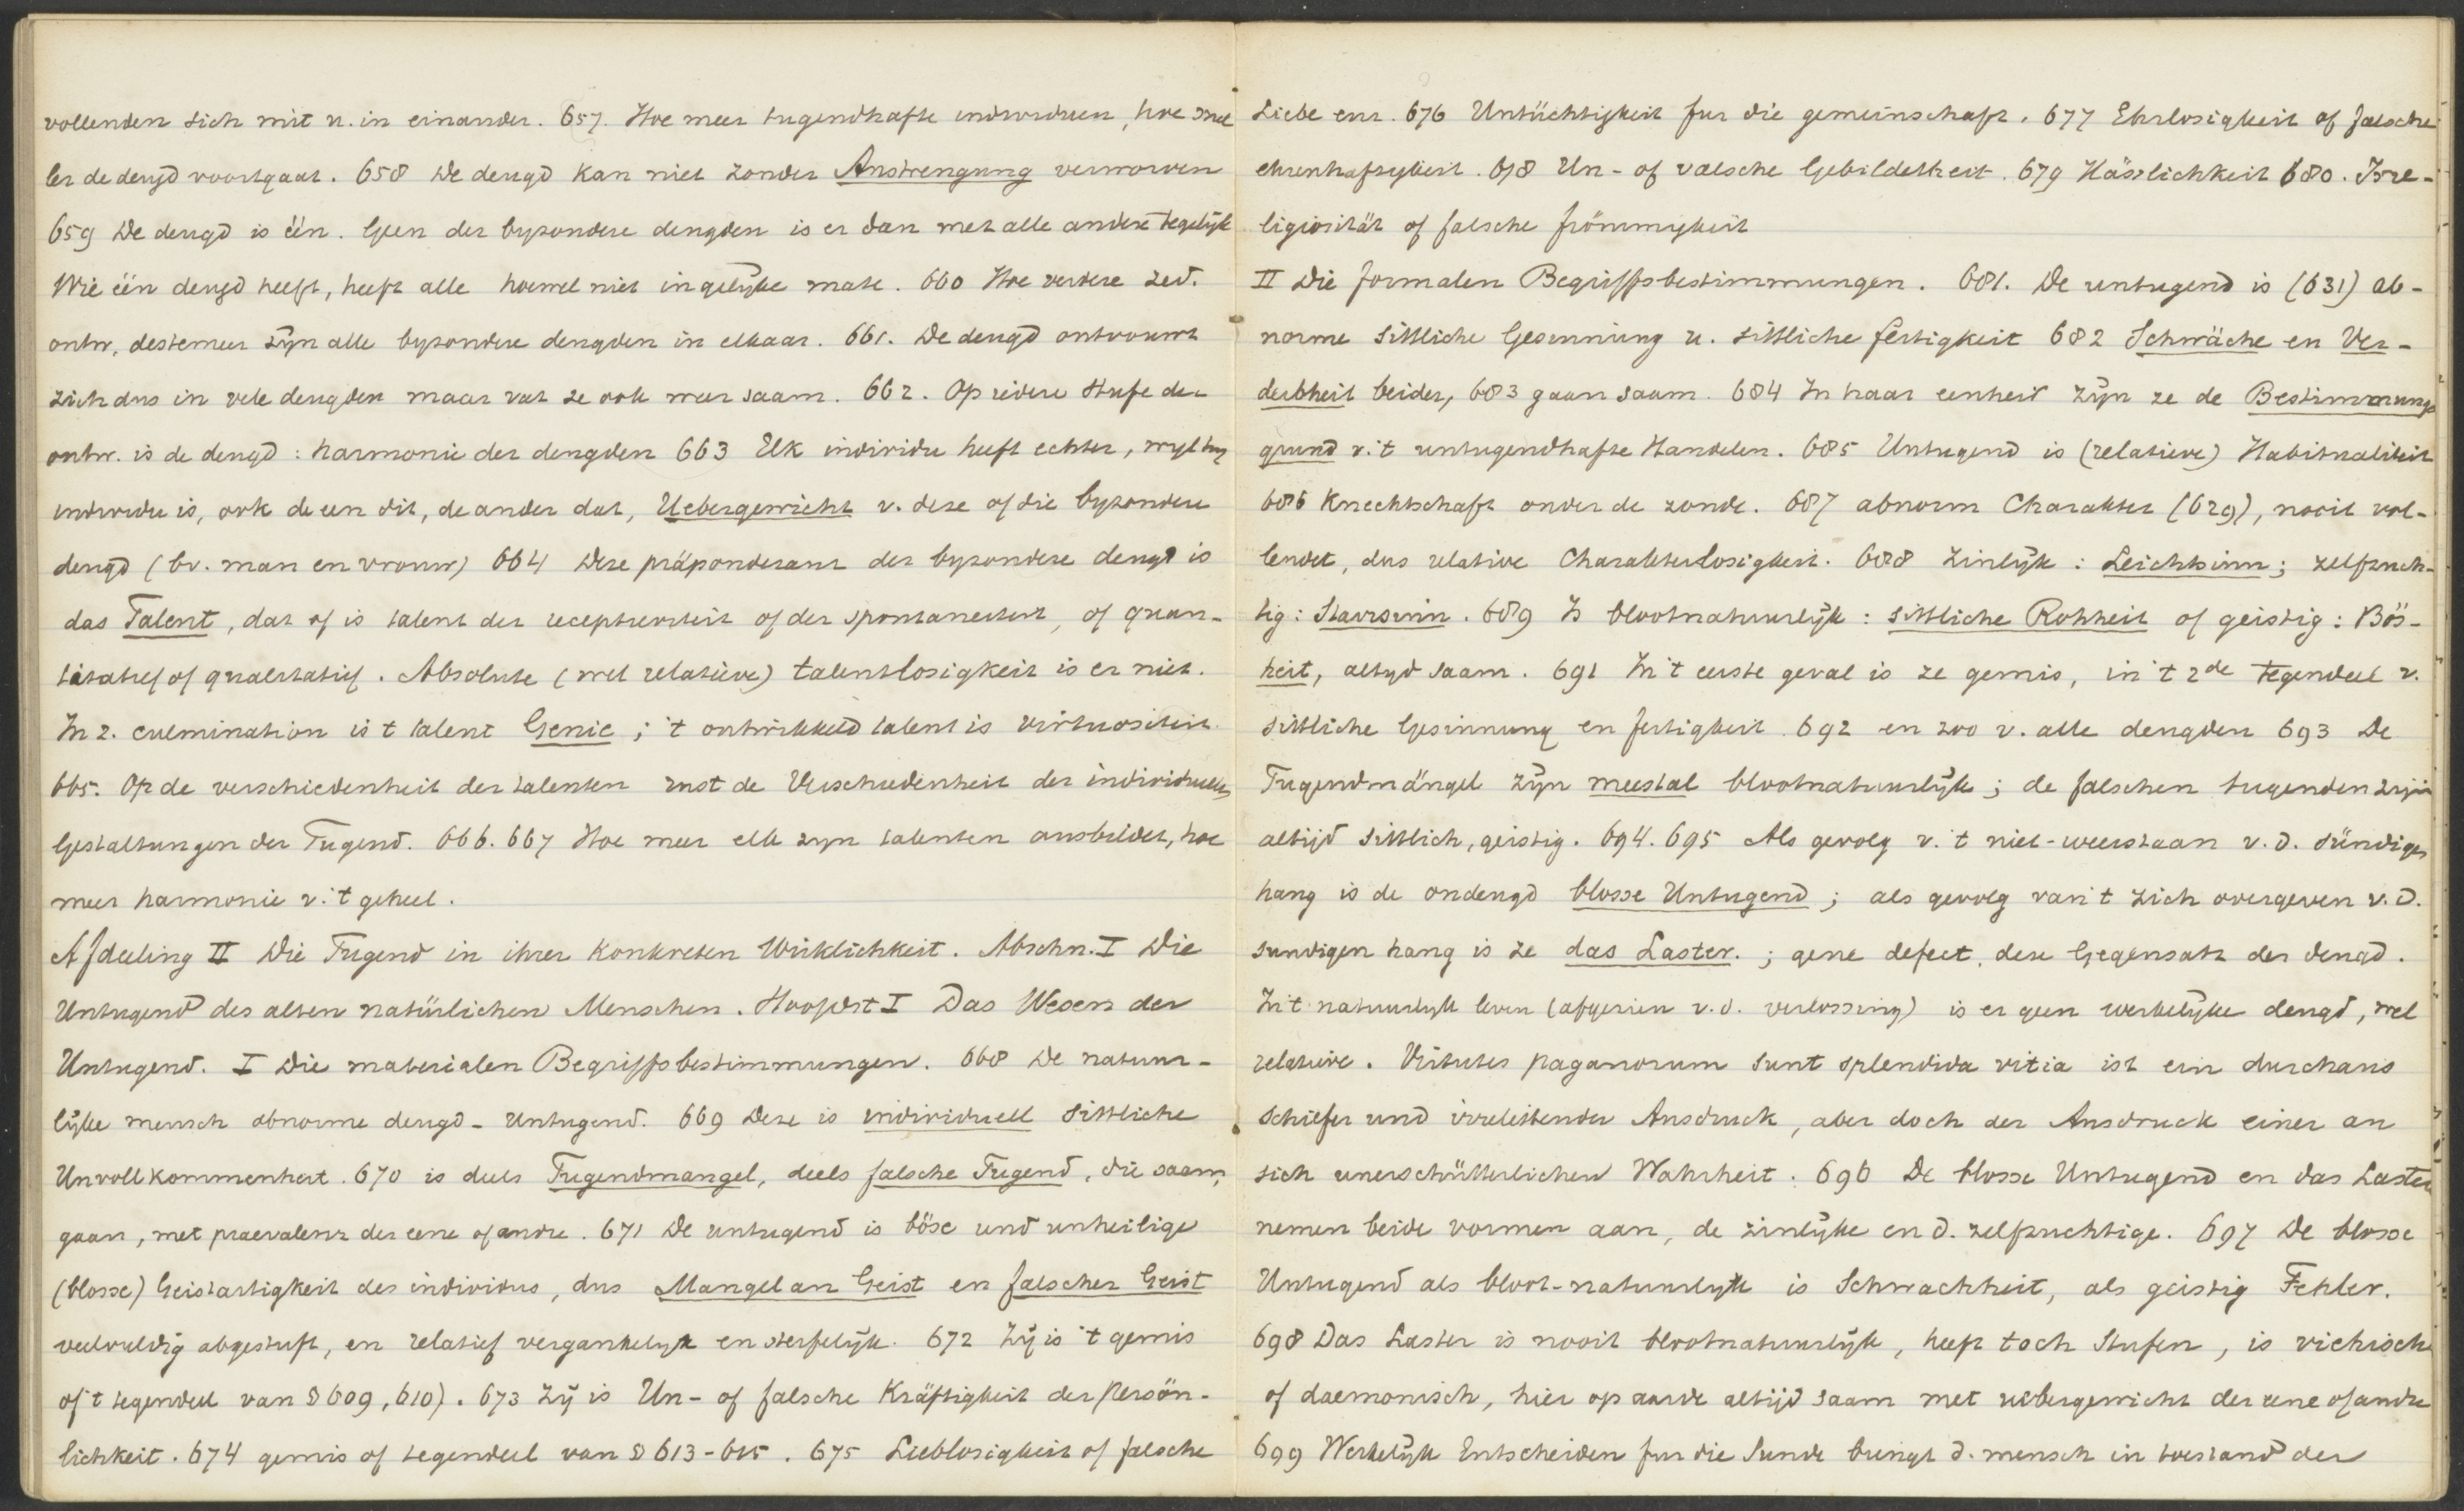 vollenden sich mit u. in einander. 657. Hoe meer tugendhafte individuen, hoe snel
ler de deugd voortgaat. 658 De deugd kan niet zonder Anstrengung verworven
659 De deugd is één. Geen der byzondere deugden is er dan met alle andere tegelijk
Wie één deugd heeft, heeft alle hoewel niet in gelijke mate. 660 Hoe verdere zed.
ontw, destemeer zijn alle byzondere deugden in elkaar. 661. De deugd ontvouwt
zich dus in vele deugden maar vat ze ook weer saam. 662. Op iedere Stufe der
ontw. is de deugd: harmonie der deugden 663 Elk individu heeft echter, wyl hy
individu is, ook de een dit, de ander dat, Uebergewicht v. deze of die byzondere
deugd (bv. man en vrouw) 664 Deze präponderanz der byzondere deugd is
das Talent, dat of is talent der receptiviteit of der spontaneiteit, of quan-
titatief of qualitatief. Absolute (wel relatieve) talentlosigkeit is er niet.
In z. culmination is t talent Genie; 't ontwikkeld talent is virtuositeit.
665. Op de verschiedenheit der talenten rust de Verschiedenheit der individuellen
Gestaltungen der Tugend. 666. 667 Hoe meer elk zyn talenten ausbildet, hoe
meer harmonie v. 't geheel.
Afdeeling II Die Tugend in ihrer konkreten Wirklichkeit. Abschn. I Die
Untugend des alten natürlichen Menschen. Hoofdst I Das Wesen der
Untugend. I Die materialen Begriffsbestimmungen. 668 De natuur-
lijke mensch abnorme deugd - Untugend. 669 Deze is individuell sittliche
Unvollkommenheit. 670 is deels Tugendmangel, deels falsche Tugend, die saam
gaan, met praevalenz der eene of andre. 671 De untugend is böse und unheilige
(blosse) Geistartigkeit des individus, dus Mangel an Geist en falscher Geist
veelvuldig abgestuft, en relatief vergankelyk en sterfelijk. 672 Zij is 't gemis
of 't tegendeel van § 609, 610). 673 Zij is Un- of falsche Kräftigkeit der persön-
lichkeit. 674 gemis of tegendeel van § 613-615. 675 Lieblosigkeit of falsche
Liebe enz. 676 Untüchtigkeit fur die gemeinschaft. 677 Ehrlosigkeit of falsche
ehrenhaftigkeit. 678 Un- of valsche Gebildetheit. 679 Hässlichkeit 680. Irre-
ligiosität of falsche frömmigkeit
II Die formalen Begriffsbestimmungen. 681. De untugend is (631) ab-
norme sittliche Gesinnung u. sittliche fertigkeit 682 Schwäche en Ver-
derbheit beider, 683 gaan saam. 684 In haar eenheid zijn ze de Bestimmungs
grund v. 't untugendhafte Handelen. 685 Untugend is (relatieve) Habitualiteit
686 Knechtschaft onder de zonde. 687 abnorm Charakter (629), nooit vol-
lendet, dus relative Charakterlosigkeit. 688 Zinlijk: Leichtsinn; zelfzuch-
tig: Starrsinn. 689 Is blootnatuurlijk: sittliche Rohheit of geistig: Bös-
heit, altyd saam. 691 In 't eerste geval is ze gemis, in 't 2de tegendeel v.
sittliche Gesinnung en fertigkeit 692 en zoo v. alle deugden 693 De
Tugendmängel zijn meestal blootnatuurlijk; de falschen tugenden zijn
altijd sittlich, geistig. 694. 695 Als gevolg v. 't niet-weerstaan v. d. sündigen
hang is de ondeugd blosse Untugend; als gevolg van 't zich overgeven v. d.
sundigen hang is ze das Laster.; gene defect, deze Gegensatz der deugd.
In 't natuurlyk leven (afgezien v. d. verlossing) is er geen werkelijke deugd, wel
relatieve. Virtutes paganorum sunt splendida vitia ist ein durchaus
schiefer und irreleitender Ausdruck, aber doch der Ausdruck einer an
sich unerschütterlichen Wahrheit. 696 De blosse Untugend en das Laster
nemen beide vormen aan, de zinlijke en d. zelfzuchtige. 697 De blosse
Untugend als bloot-natuurlyk is Schwachheit, als geistig Fehler.
698 Das Laster is nooit blootnatuurlijk, heeft toch Stufen, is viehisch
of daemonisch, hier op aarde altijd saam met uebergewicht der eene of andre
699 Werkelijk Entscheiden fur die Sunde brengt d. mensch in toestand der